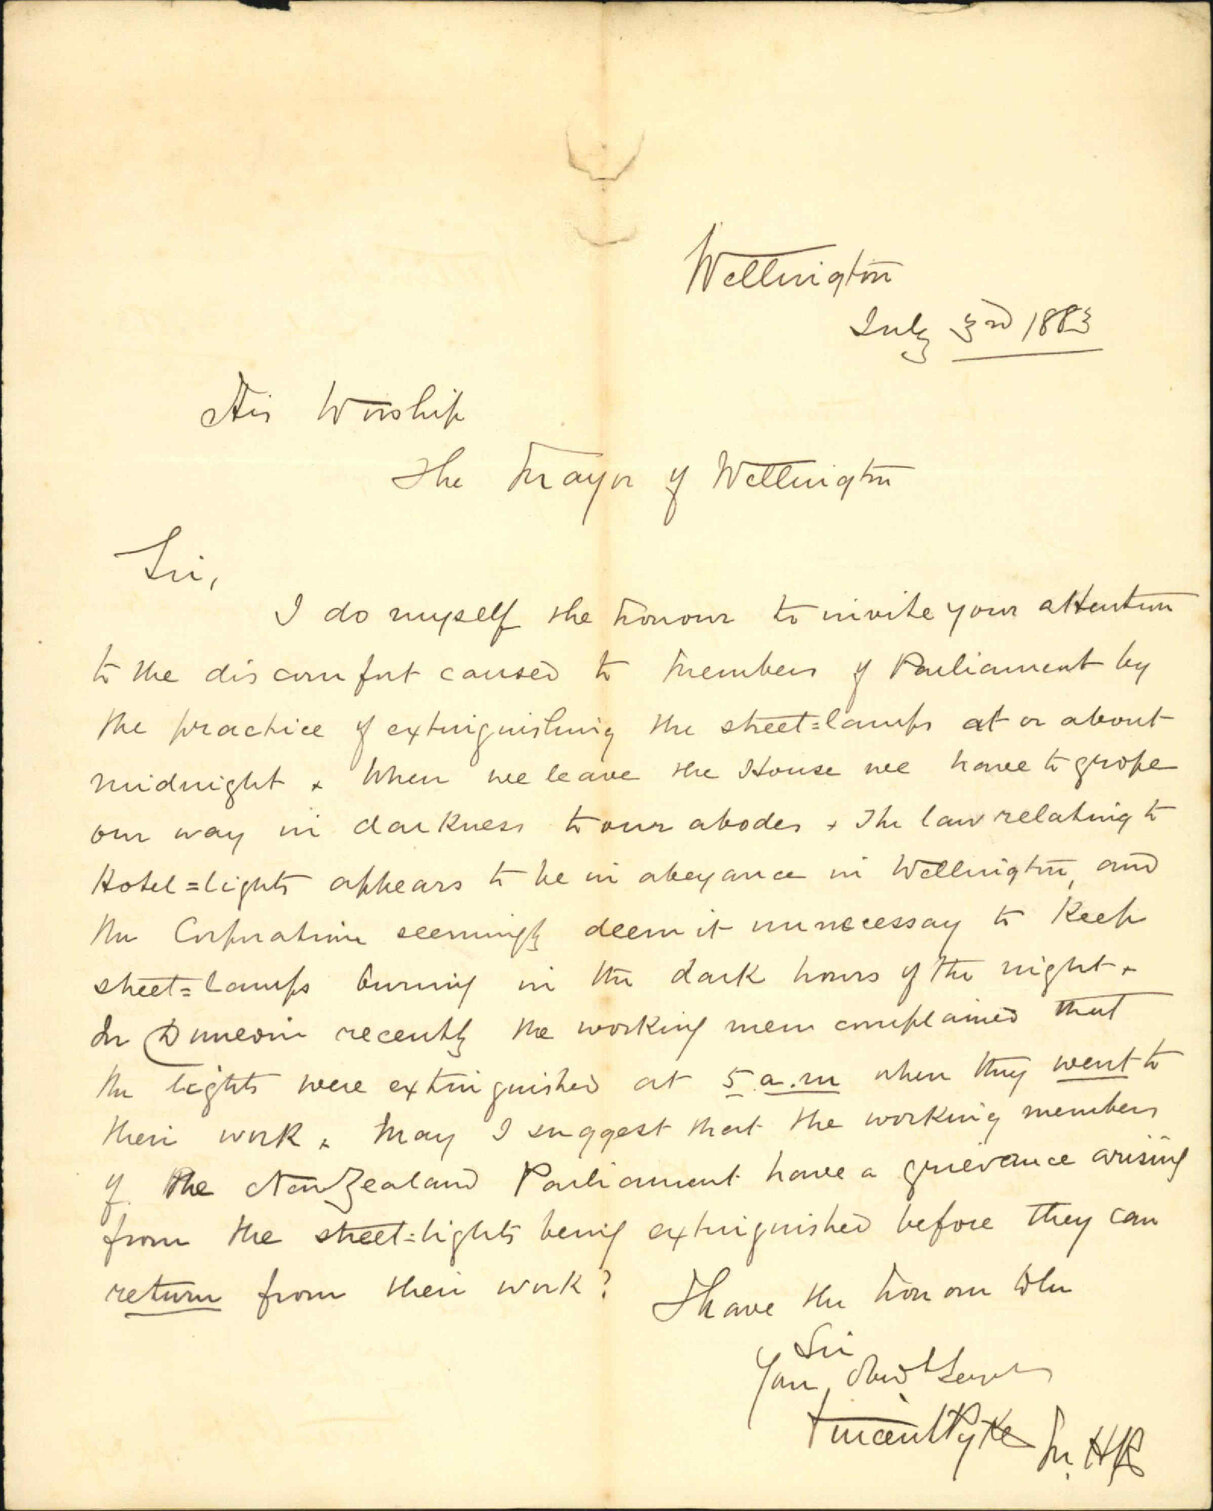 Wellington
July 3rd 1883
His Worship
The Mayor of Wellington
Sir,
I do myself the honour to invite your attention
to the discomfort caused to Members of Parliament by
the practice of extinguishing the street=lamps at or about
midnight. When we leave the House we have to grope
our way in darkness to our abodes. The law relating to
Hotel=lights appears to be in abeyance in Wellington, and
the Corporation seemingly deem it unnecessay to keep
street=lamps burning in the dark hours of the night.
In Dunedin recently the working men complained that
the lights were extinguished at 5 a.m when they went to
their work. May I suggest that the working members
of the New Zealand Parliament have a grievance arising
from the street=lights being extinguished before they can
return from their work?
I have the honour to be
Sir
Your Obedt Servt
Vincent Pyke M.H.R